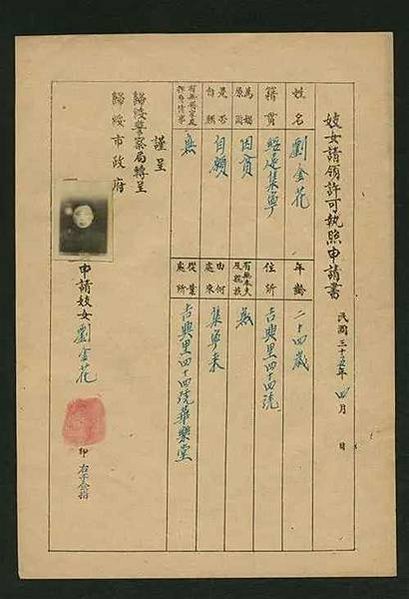 妓女請領許可執照申請書
民國三十五年四月 日
姓名 劉金花 年齡 二十四歲
籍貫 綏遠集寧 住所 吉興里四十四號
為娼原因 因貧 有無本夫及親族 無
是否自願 自願 由何處來 集寧來
有無領家及情事 無 從業處所 吉興里四十四號華樂堂
謹呈
歸綏警察局轉呈
歸綏市政府
申請妓女 劉金花
印 右手食指